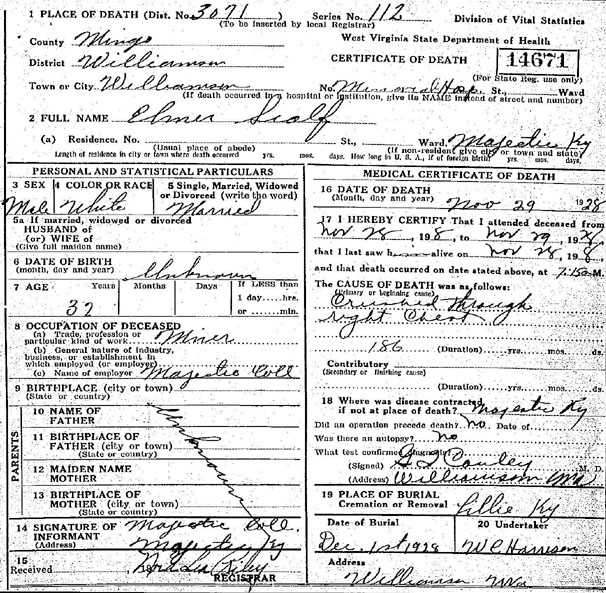 1 PLACE OF DEATH (Dist. No. 3071 Series No. 112 Division of Vital Statistics
(To be inserted by local Registrar)
County Mingo West Virginia State Department of Health
District Williamson CERTIFICATE OF DEATH 14671
(For State Reg. use only)
Town or City Williamson No. Memorial Hosp. St., Ward
(If death occurred in a hospital or institution, give its NAME instead of street and number)
2 FULL NAME Elmer
(a) Residence. No. St., Ward, Majestic Ky
(Usual place of abode) (If non-resident give city or town and state)
Length of residence in city or town where death occurred yrs. mos. days. How long in U. S. A., if of foreign birth? yrs. mos. days.
PERSONAL AND STATISTICAL PARTICULARS
3 SEX 4 COLOR OR RACE 5 Single, Married, Widowed
or Divorced (write the word)
Male White Married
5a If married, widowed or divorced
HUSBAND of
(or) WIFE of
(Give full maiden name)
6 DATE OF BIRTH
(month, day and year) Unknown
7 AGE Years Months Days If LESS than
1 day....hrs.
or ........min.
32
8 OCCUPATION OF DECEASED
(a) Trade, profession or
particular kind of work Miner
(b) General nature of industry,
business, or establishment in
which employed (or employer)
(c) Name of employer Majestic Coll
9 BIRTHPLACE (city or town)
(State or country)
PARENTS
10 NAME OF
FATHER
11 BIRTHPLACE OF
FATHER (city or town)
(State or country)
12 MAIDEN NAME
MOTHER
13 BIRTHPLACE OF
MOTHER (city or town)
(State or country)
Unknown
14 SIGNATURE OF Majestic Coll.
INFORMANT
(Address) Majestic Ky
15
Received Riley
REGISTRAR
MEDICAL CERTIFICATE OF DEATH
16 DATE OF DEATH
(Month, day and year) Nov 29 1928
17 I HEREBY CERTIFY That I attended deceased from
Nov 28, 1928, to Nov 29, 1928
that I last saw h alive on Nov 28, 1928,
and that death occurred on date stated above, at 7:15 M.
The CAUSE OF DEATH was as follows:
(Primary or beginning cause)
Crushed through
right Chest
186
(Duration) yrs. mos. ds.
Contributory
(Secondary or finishing cause)
(Duration) yrs. mos. ds.
18 Where was disease contracted
if not at place of death? Majestic Ky
Did an operation precede death? no Date of
Was there an autopsy? no
What test confirmed diagnosis?
(Signed) M. D.
(Address) Williamson WVa
19 PLACE OF BURIAL
Cremation or Removal Lillie Ky
Date of Burial 20 Undertaker
Dec. 1st 1928 W C Harrison
Address
Williamson WVa